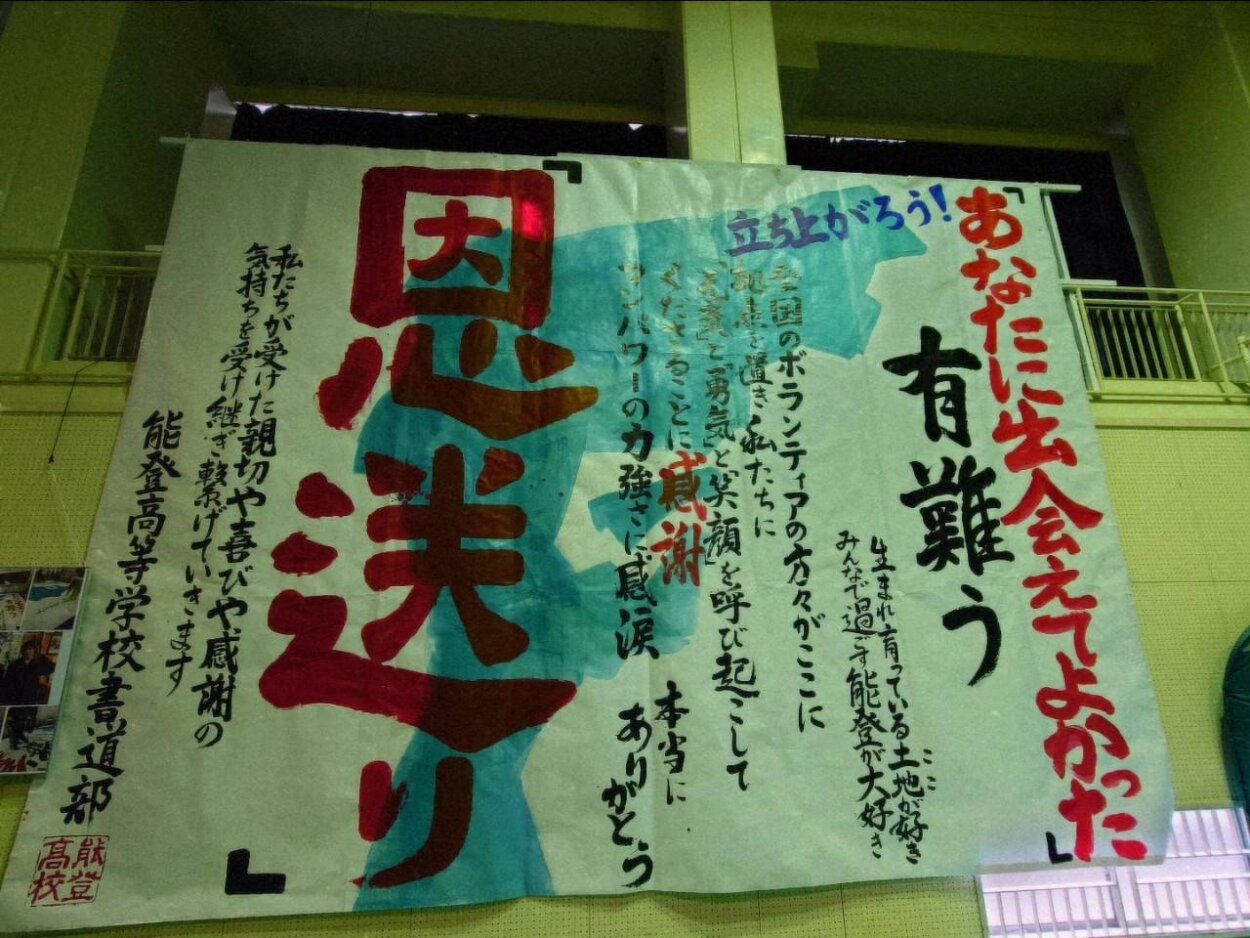 「あなたに出会えてよかった」
立ち上がろう!
有難う
生まれ育っている土地が好き
ここ
みんなで過ごす能登が大好き
全国のボランティアの方々がここに
拠点を置き私たちに
「元気」と「勇気」と「笑顔」を呼び起こして
くださることに感謝
マンパワーの力強さに感涙
本当に
ありがとう
「恩送り」
私たちが受けた親切や喜びや感謝の
気持ちを受け継ぎ繋げていきます
能登高等学校書道部
能登
高校